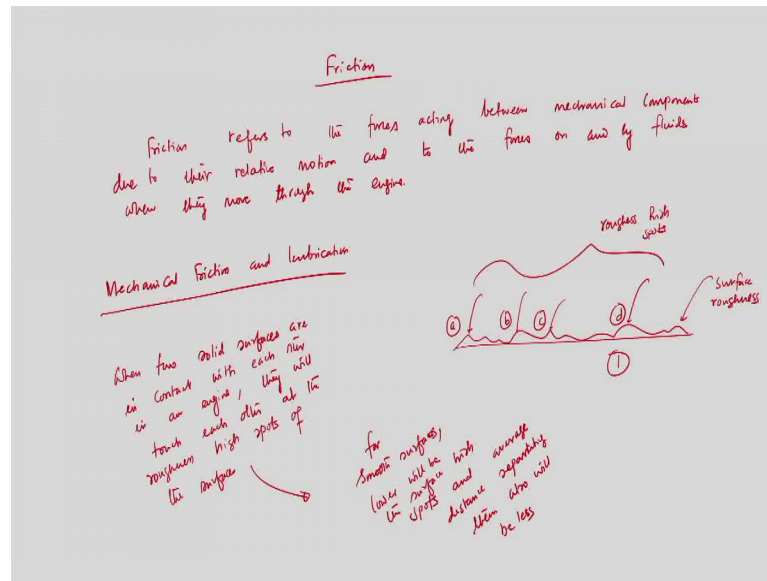 Friction
Friction refers to the forces acting between mechanical components
due to their relative motion and to the forces on and by fluids
when they move through the engine.
Mechanical Friction and lubrication
When two solid surfaces are
in contact with each other
in an engine, they will
touch each other at the
roughness high spots of
the surface
for
smooth surfaces,
lower will be
the surface high
spots and average
distance separating
them also will
be less
roughness high
spots
surface
roughness
a
b
c
d
1